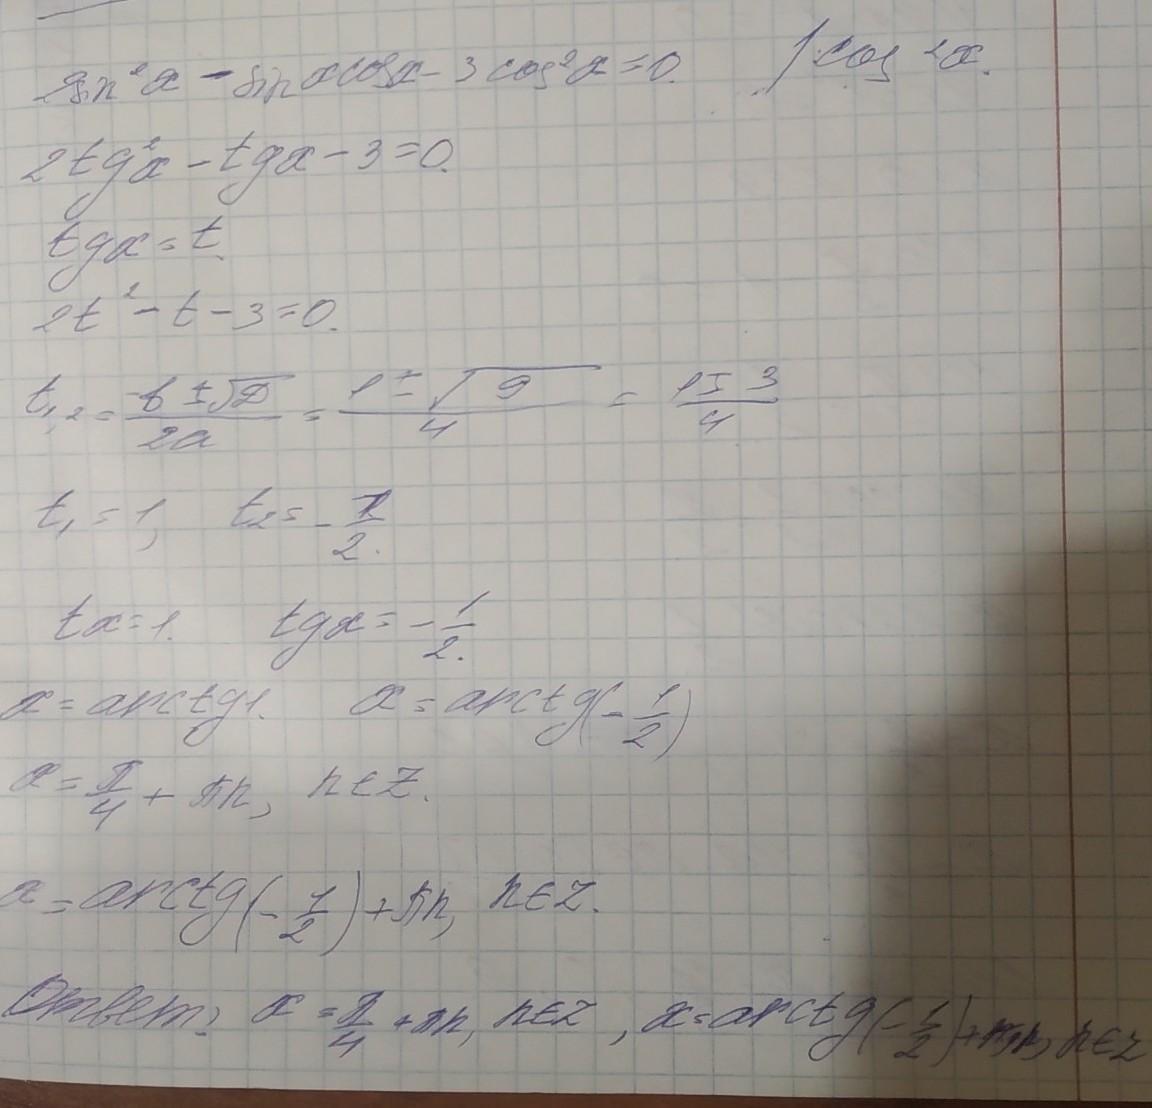 2sin²x - sinxcosx - 3cos²x = 0. /:cos²x.
2tg²x - tgx - 3 = 0.
tgx = t.
2t² - t - 3 = 0.
t₁,₂ = (-b ± √D)/(2a) = (1 ± √9)/4 = (1 ± 3)/4
t₁ = 1, t₂ = -1/2.
tx = 1. tgx = -1/2.
x = arctg1. x = arctg(-1/2)
x = π/4 + πn, n∈Z.
x = arctg(-1/2) + πn, n∈Z.
Ответ: x = π/4 + πn, n∈Z, x = arctg(-1/2) + πn, n∈Z